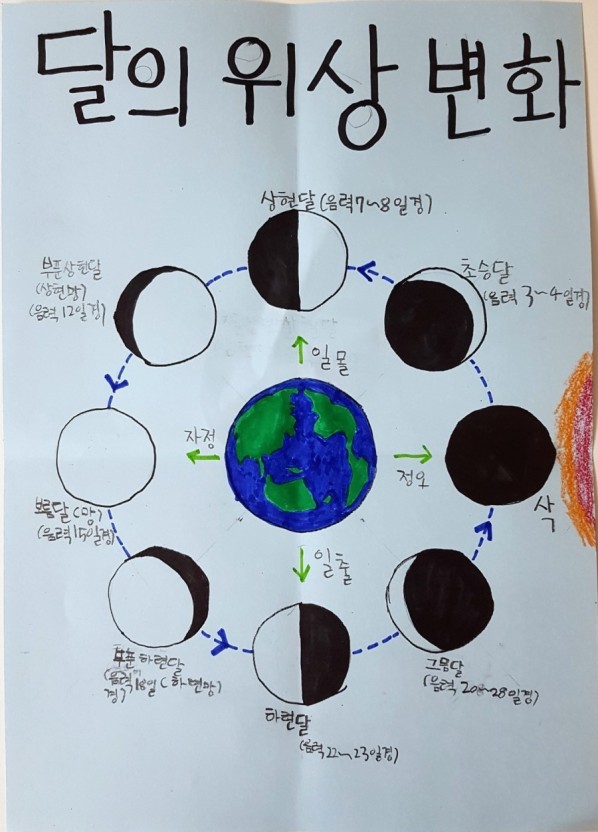 달의 위상 변화
상현달 (음력 7~8일경)
초승달
(음력 3~4일경)
부푼상현달
(상현망)
(음력 12일경)
일몰
자정
정오
삭
보름달 (망)
(음력 15일경)
일출
그믐달
(음력 20~28일경)
부푼 하현달
(음력 18일 (하현망)
경)
하현달
(음력 22~23일경)